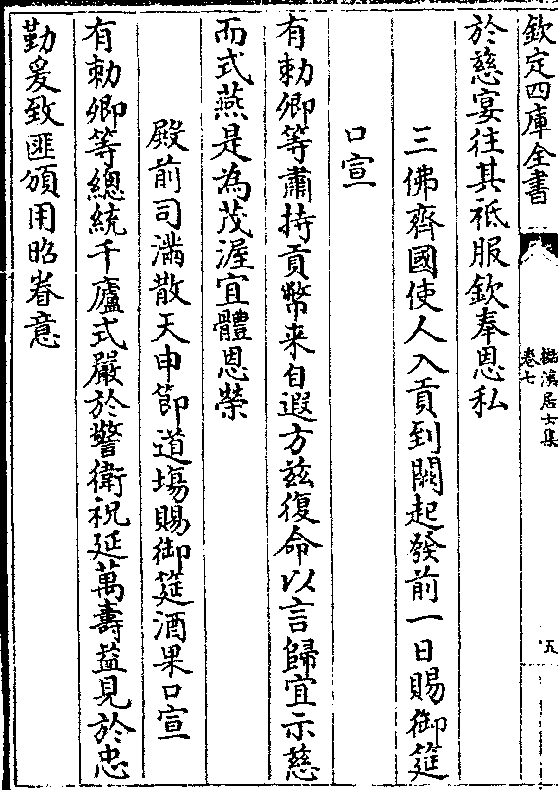 欽定四庫全書
卷七
居士集
五
於慈宴往其祗服欽奉恩私
三佛齊國使人入貢到闕起發前一日賜御筵
口宣
有勅卿等肅持貢幣来自遐方兹復命以言歸宜示慈
而式燕是為茂渥宜體恩榮
殿前司滿散天申節道塲賜御筵酒果口宣
有勅卿等總統千廬式嚴於警衛祝延萬壽益見於忠
勤爰致匪頒用昭眷意